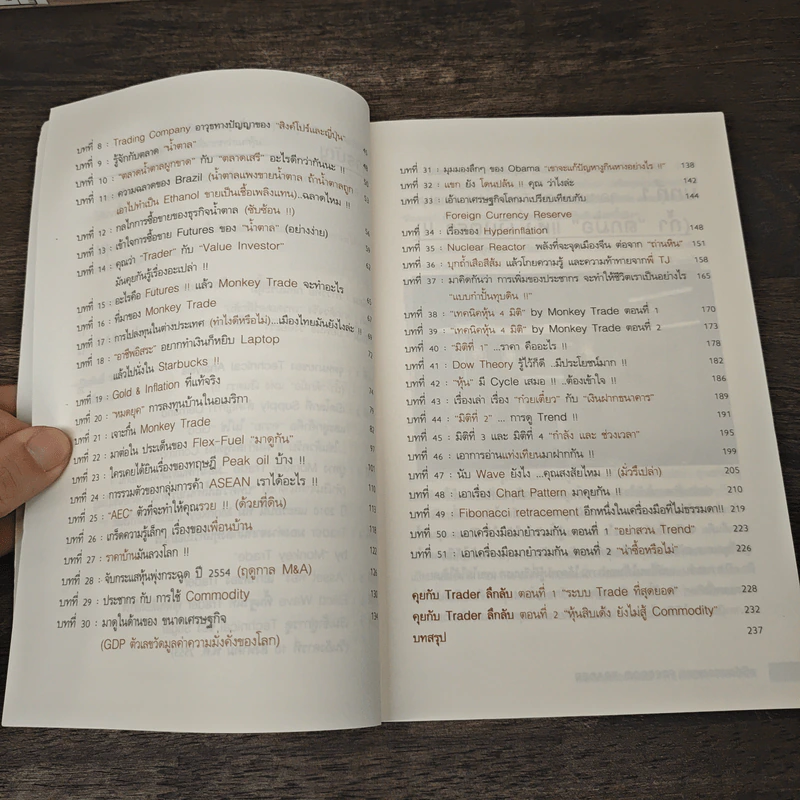 บทที่ 8 : Trading Company อาวุธทางปัญญาของ "สิงค์โปร์และญี่ปุ่น"
บทที่ 9 : รู้จักกับตลาด "น้ำตาล"
บทที่ 10 : "ตลาดน้ำตาลผูกขาด" กับ "ตลาดเสรี" อะไรดีกว่ากันนะ !!
บทที่ 11 : ความฉลาดของ Brazil (น้ำตาลแพงขายน้ำตาล ถ้าน้ำตาลถูก
เอาไปทำเป็น Ethanol ขายเป็นเชื้อเพลิงแทน)..ฉลาดไหม !!
บทที่ 12 : กลไกการซื้อขายของธุรกิจน้ำตาล (ซับซ้อน !!)
บทที่ 13 : เข้าใจการซื้อขาย Futures ของ "น้ำตาล" (อย่างง่าย) 56
บทที่ 14 : คุณว่า "Trader" กับ "Value Investor"
มันคุยกันรู้เรื่องอะเปล่า !!
บทที่ 15 : อะไรคือ Futures !! แล้ว Monkey Trade จะทำอะไร
บทที่ 16 : ที่มาของ Monkey Trade
บทที่ 17 : การไปลงทุนในต่างประเทศ (ทำไงดีหรือไม่)...เมืองไทยมันยังไงล่ะ !!
บทที่ 18 : "อาชีพอิสระ" อยากทำเงินก็หยิบ Laptop 72
แล้วไปนั่งใน Starbucks !!
บทที่ 19 : Gold & Inflation ที่แท้จริง
บทที่ 20 : "หมดยุค" การลงทุนบ้านในอเมริกา
บทที่ 21 : เจาะกึ๋น Monkey Trade
บทที่ 22 : มาต่อใน ประเด็นของ Flex-Fuel "มาดูกัน"
บทที่ 23 : ใครเคยได้ยินเรื่องของทฤษฎี Peak oil บ้าง !! 101
บทที่ 24 : การรวมตัวของกลุ่มการค้า ASEAN เราได้อะไร !!
บทที่ 25 : "AEC" ตัวที่จะทำให้คุณรวย !! (ด้วยที่ดิน) 113
บทที่ 26 : เกร็ดความรู้เล็กๆ เรื่องของเพื่อนบ้าน 118
บทที่ 27 : ราคาบ้านมันลวงโลก !! 122
บทที่ 28 : จับกระแสหุ้นพุ่งกระฉูด ปี 2554 (ฤดูกาล M&A) 126
บทที่ 29 : ประชากร กับ การใช้ Commodity 130
บทที่ 30 : มาดูในด้านของ ขนาดเศรษฐกิจ 134
(GDP ตัวเลขวัดมูลค่าความมั่งคั่งของโลก)
บทที่ 31 : มุมมองลึกๆ ของ Obama "เขาจะแก้ปัญหางูกินหางอย่างไร !!" 138
บทที่ 32 : แขก ยัง โดนปล้น !! คุณ ว่าไงล่ะ 141
บทที่ 33 : เอ้าเอาเศรษฐกิจโลกมาเปรียบเทียบกับ 144
Foreign Currency Reserve
บทที่ 34 : เรื่องของ Hyperinflation 148
บทที่ 35 : Nuclear Reactor พลังที่จะจุดเมืองจีน ต่อจาก "ถ่านหิน" 151
บทที่ 36 : บุกถ้ำเสือสีส้ม แล้วโกยความรู้ และความท้าทายจากพี่ TJ 158
บทที่ 37 : มาคิดกันว่า การเพิ่มของประชากร จะทำให้ชีวิตเราเป็นอย่างไร 165
"แบบกำปั้นทุบดิน !!"
บทที่ 38 : "เทคนิคหุ้น 4 มิติ" by Monkey Trade ตอนที่ 1 170
บทที่ 39 : "เทคนิคหุ้น 4 มิติ" by Monkey Trade ตอนที่ 2 173
บทที่ 40 : "มิติที่ 1" ...ราคา คืออะไร !! 178
บทที่ 41 : Dow Theory รู้ไว้ก็ดี ..มีประโยชน์มาก !! 182
บทที่ 42 : "หุ้น" มี Cycle เสมอ !! ..ต้องเข้าใจ !! 186
บทที่ 43 : เรื่องเล่า เรื่อง "ก๋วยเตี๋ยว" กับ "เงินฝากธนาคาร" 189
บทที่ 44 : "มิติที่ 2" ... การดู Trend !! 191
บทที่ 45 : มิติที่ 3 และ มิติที่ 4 "กำลัง และ ช่วงเวลา" 195
บทที่ 46 : เอาการอ่านแท่งเทียนมาฝากกัน !! 199
บทที่ 47 : นับ Wave ยังไง ...คุณสงสัยไหม !! (มั่วรึเปล่า) 205
บทที่ 48 : เอาเรื่อง Chart Pattern มาคุยกัน !! 210
บทที่ 49 : Fibonacci retracement อีกหนึ่งในเครื่องมือที่ไม่ธรรมดา!! 219
บทที่ 50 : เอาเครื่องมือมายำรวมกัน ตอนที่ 1 "อย่าสวน Trend" 223
บทที่ 51 : เอาเครื่องมือมายำรวมกัน ตอนที่ 2 "น่าซื้อหรือไม่" 226
คุยกับ Trader ลึกลับ ตอนที่ 1 "ระบบ Trade ที่สุดยอด" 228
คุยกับ Trader ลึกลับ ตอนที่ 2 "หุ้นสิบเด้ง ยังไม่สู้ Commodity" 232
บทสรุป 237